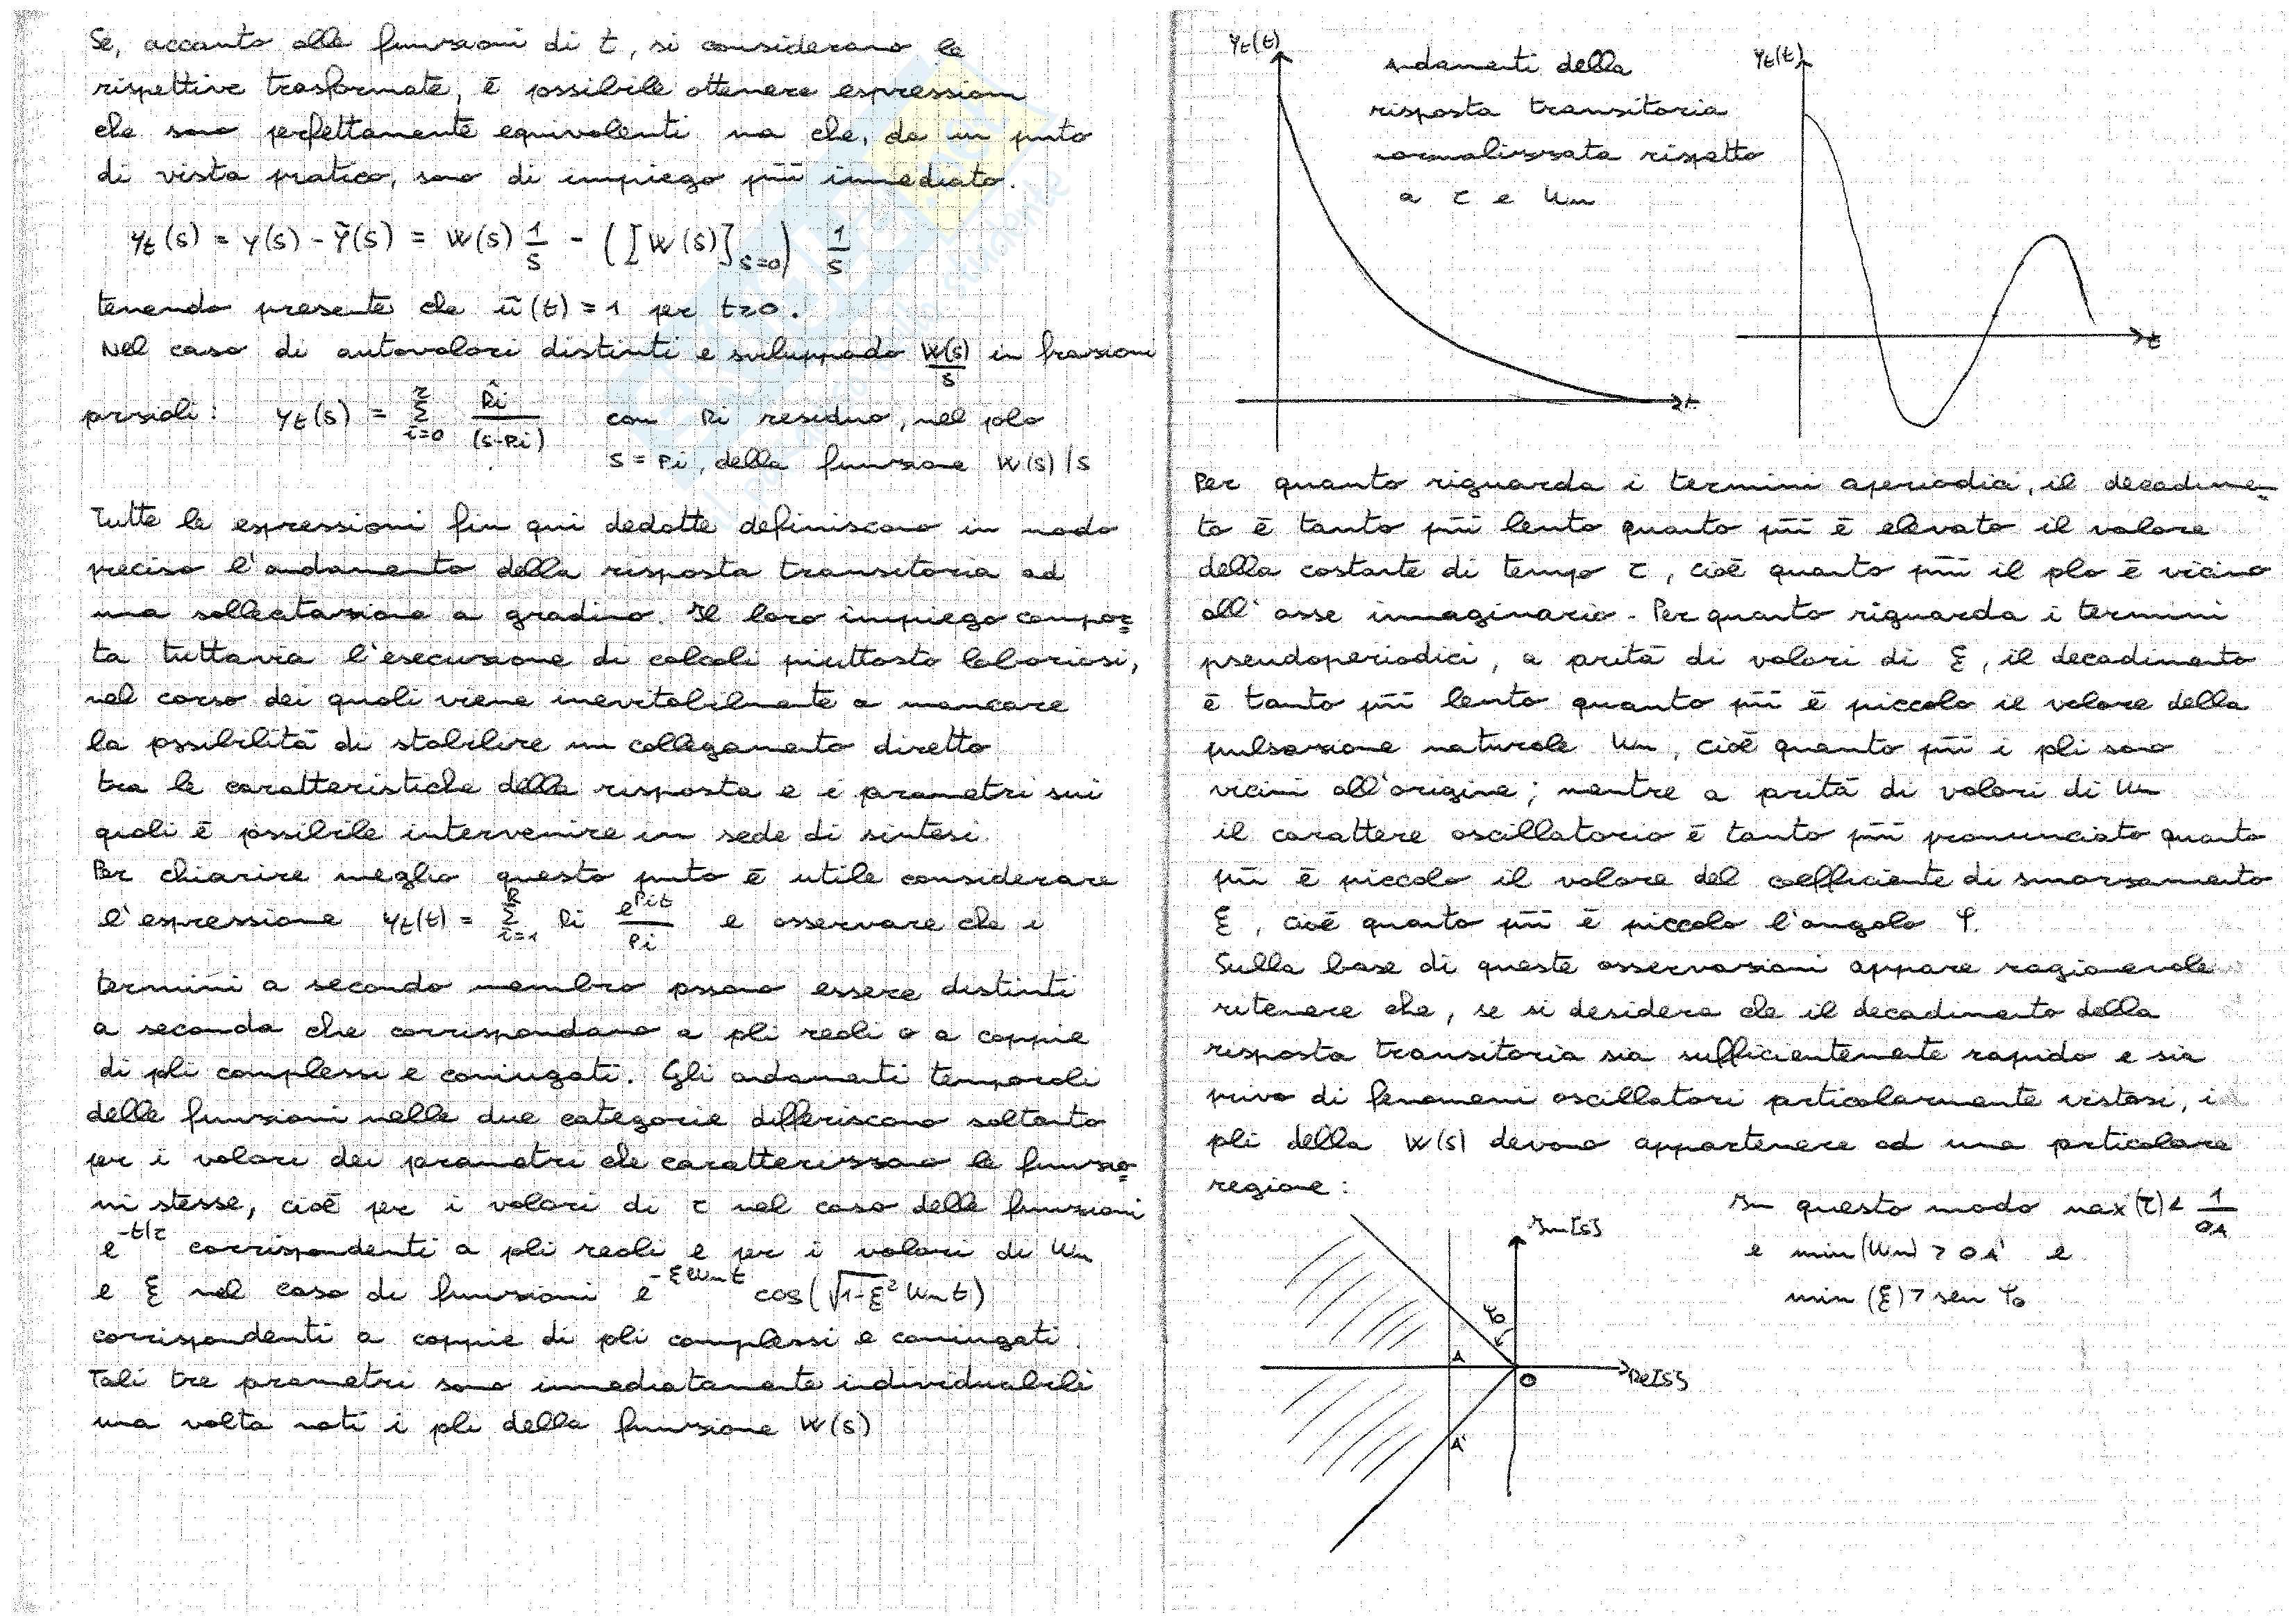 Se, accanto alle funzioni di t, si considerano le
rispettive trasformate, è possibile ottenere espressioni
che sono perfettamente equivalenti ma che, da un punto
di vista pratico, sono di impiego più immediato.
yt(s) = y(s) - ỹ(s) = W(s) 1/s - ([W(s)]s=0) 1/s
tenendo presente che ũ(t) = 1 per t≥0.
Nel caso di autovalori distinti e sviluppando W(s)/s in frazioni
parziali: yt(s) = Σ i=0 r R̂i/(s-Pi) con Ri residuo, nel polo
s = Pi, della funzione W(s)/s
Tutte le espressioni fin qui dedotte definiscono in modo
preciso l'andamento della risposta transitoria ad
una sollecitazione a gradino. Il loro impiego compor=
ta tuttavia l'esecuzione di calcoli piuttosto laboriosi,
nel corso dei quali viene inevitabilmente a mancare
la possibilità di stabilire un collegamento diretto
tra le caratteristiche della risposta e i parametri sui
quali è possibile intervenire in sede di sintesi.
Per chiarire meglio questo punto è utile considerare
l'espressione yt(t) = Σ i=1 R Ri e^Pit/Pi e osservare che i
termini a secondo membro possono essere distinti
a seconda che corrispondano a poli reali o a coppie
di poli complessi e coniugati. Gli andamenti temporali
delle funzioni nelle due categorie differiscono soltanto
per i valori dei parametri che caratterizzano le funzio=
ni stesse, cioè per i valori di τ nel caso delle funzioni
e^-t/τ corrispondenti a poli reali e per i valori di Wn
e ξ nel caso di funzioni e^-ξWnt cos(√1-ξ² Wnt)
corrispondenti a coppie di poli complessi e coniugati.
Tali tre parametri sono immediatamente individuabili
una volta noti i poli della funzione W(s)
yt(t)
andamenti della
risposta transitoria
normalizzata rispetto
a τ e Wn
t
yt(t)
t
Per quanto riguarda i termini aperiodici, il decadimen=
to è tanto più lento quanto più è elevato il valore
della costante di tempo τ, cioè quanto più il polo è vicino
all'asse immaginario. Per quanto riguarda i termini
pseudoperiodici, a parità di valori di ξ, il decadimento
è tanto più lento quanto più è piccolo il valore della
pulsazione naturale Wn, cioè quanto più i poli sono
vicini all'origine; mentre a parità di valori di Wn
il carattere oscillatorio è tanto più pronunciato quanto
più è piccolo il valore del coefficiente di smorzamento
ξ, cioè quanto più è piccolo l'angolo φ.
Sulla base di queste osservazioni appare ragionevole
ritenere che, se si desidera che il decadimento della
risposta transitoria sia sufficientemente rapido e sia
privo di fenomeni oscillatori particolarmente vistosi, i
poli della W(s) devono appartenere ad una particolare
regione:
Im[s]
φo
A
O
Re[s]
A'
In questo modo max(τ) < 1/OA
e min(Wn) > OA' e
min(ξ) > sen φo